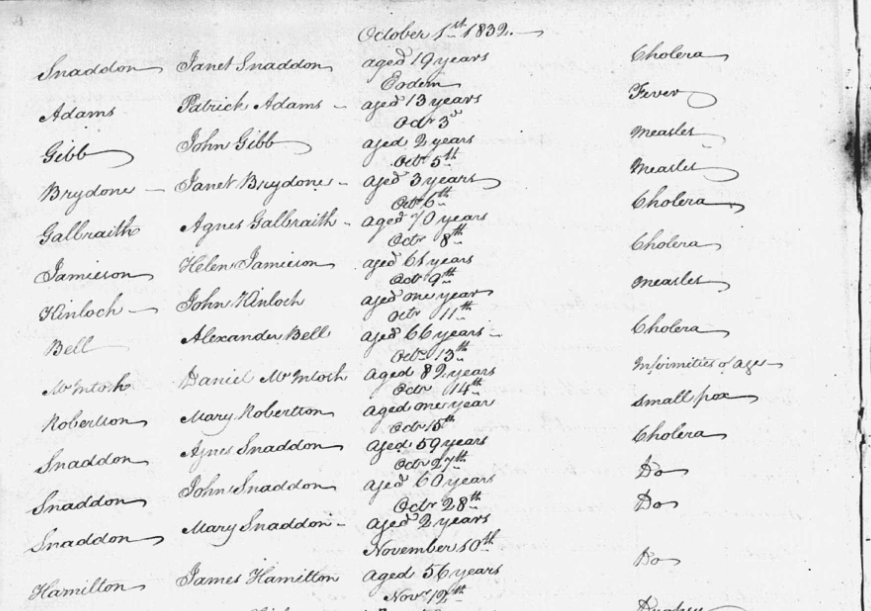 October 1st 1832.
Snaddon Janet Snaddon aged 19 years Cholera
Eodem
Adams Patrick Adams aged 13 years Fever
Octr 3d
Gibb John Gibb aged 2 years Measles
Octr 5th
Brydone Janet Brydone aged 3 years Measles
Octr 6th
Galbraith Agnes Galbraith aged 70 years Cholera
Octr 8th
Jamieson Helen Jamieson aged 61 years Cholera
Octr 9th
Kinloch John Kinloch aged one year Measles
Octr 11th
Bell Alexander Bell aged 66 years Cholera
Octr 13th
McIntosh Daniel McIntosh aged 82 years Infirmities of age
Octr 14th
Robertson Mary Robertson aged one year Small pox
Octr 15th
Snaddon Agnes Snaddon aged 59 years Cholera
Octr 27th
Snaddon John Snaddon aged 60 years Do
Octr 28th
Snaddon Mary Snaddon aged 2 years Do
November 10th
Hamilton James Hamilton Aged 56 years Do
Novr 12th